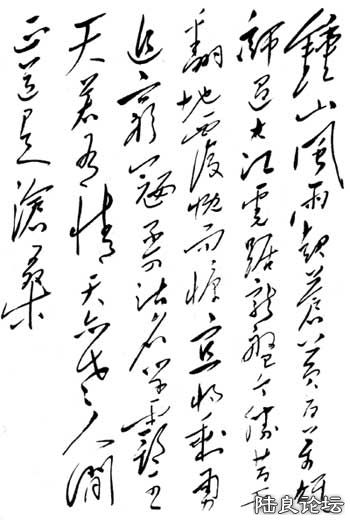 鍾山風雨起蒼黃百萬雄
師過大江虎踞龍盤今勝昔天
翻地覆慨而慷宜將剩勇
追窮寇不可沽名學霸王
天若有情天亦老人間
正道是滄桑
陆良论坛